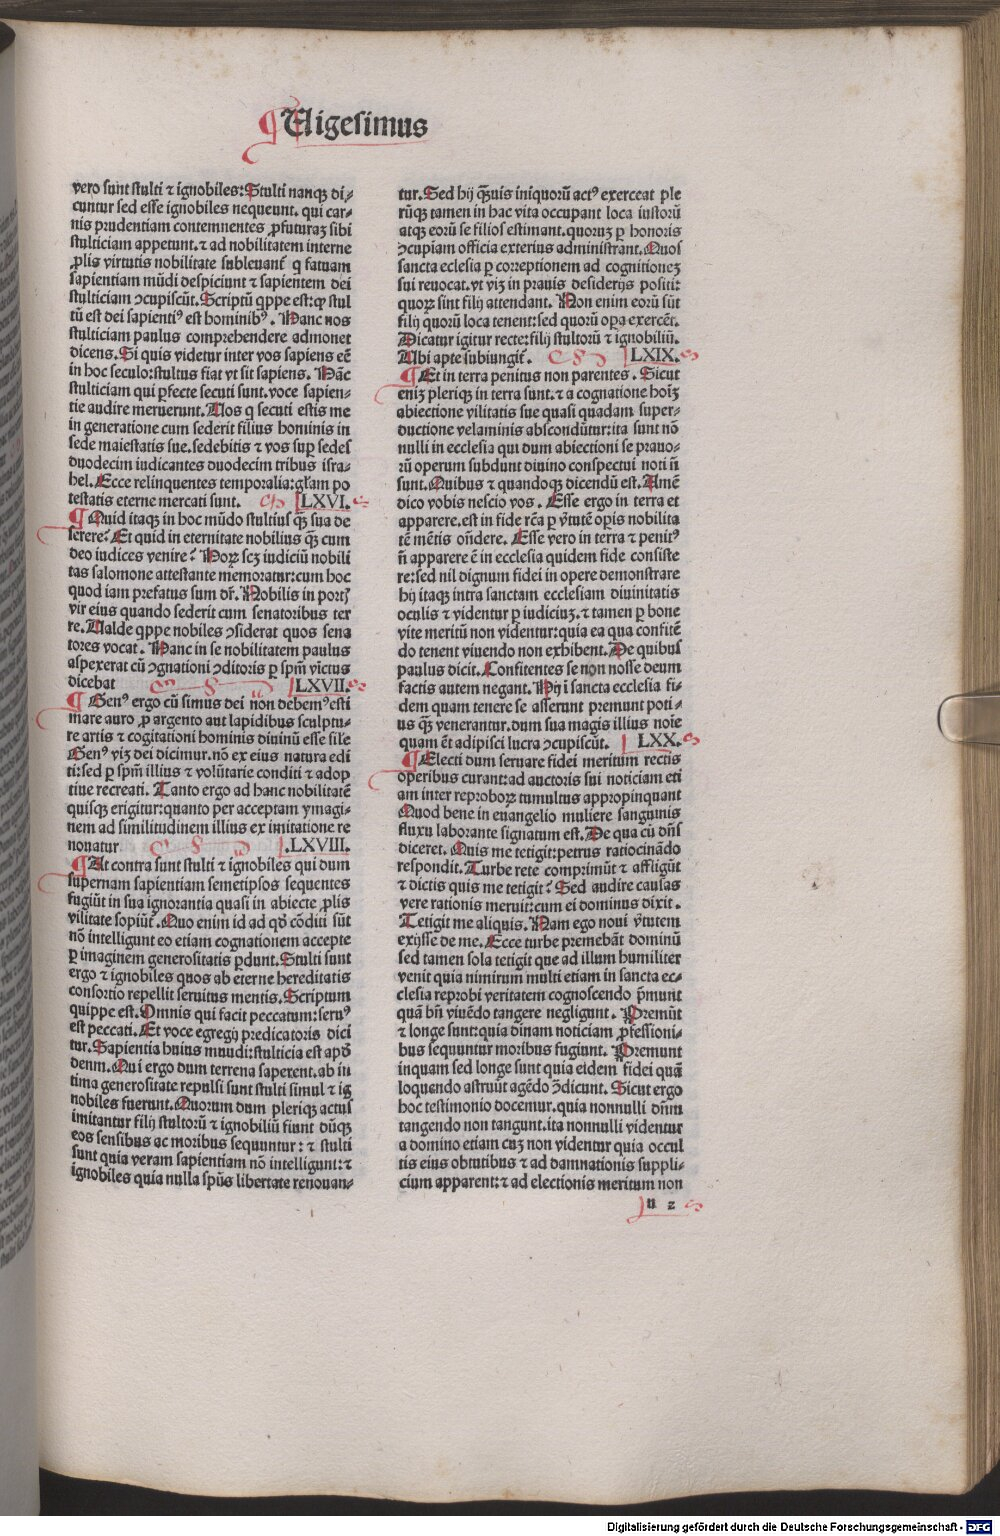 Uigesimus
vero sunt stulti ⁊ ignobiles: Stulti nanqꝫ di⸗
cuntur sed esse ignobiles nequeunt. qui car⸗
nis prudentiam contemnentes ꝓfuturaꝫ sibi
stulticiam appetunt. ⁊ ad nobilitatem interne
ꝓlis virtutis nobilitate sublevant̃ q fatuam
sapientiam mūdi despiciunt ⁊ sapientem dei
stulticiam ꝯcupiscūt. Scriptū qppe est: qꝫ stul
tū est dei sapientiꝰ est hominibꝰ. Hanc nos
stulticiam paulus comprehendere admonet
dicens. Si quis videtur inter vos sapiens eē
in hoc seculo: stultus fiat vt sit sapiens. Hāc
stulticiam qui ꝑfecte secuti sunt. voce sapien⸗
tie audire meruerunt. Uos q secuti estis me
in generatione cum sederit filius hominis in
sede maiestatis sue. sedebitis ⁊ vos suꝑ sedes
duodecim iudicantes duodecim tribus isra⸗
hel. Ecce relinquentes temporalia: gl̄am po
testatis eterne mercati sunt. LXVI.
Quid itaqꝫ in hoc mūdo stultiꝰ qꝫ̄ sua de
serere? Et quid in eternitate nobilius qꝫ̄ cum
deo iudices venire? Horꝝ scꝫ iudiciū nobili
tas salomone attestante memoratur: cum hoc
quod iam prefatus sum dr̄. Nobilis in portꝭ
vir eius quando sederit cum senatoribus ter
re. Ualde qppe nobiles ꝯsiderat quos sena
tores vocat. Hanc in se nobilitatem paulus
aspexerat cū ꝯgnationi ꝯditoris ꝑ spm̄ vīctus
dicebat LXVII.
Genꝰ ergo cū simus dei non debemꝰ esti
mare auro ꝓ argento aut lapidibus sculptu⸗
re artis ⁊ cogitationi hominis divinū esse sile
Genꝰ viꝫ dei dicimur. nō ex eius natura edi
ti: sed ꝑ spm̄ illius ⁊ volūtarie conditi ⁊ adop
tive recreati. Tanto ergo ad hanc nobilitatē
quisqꝫ erigitur: quanto per acceptam ymagi⸗
nem ad similitudinem illius ex imitatione re
novatur .LXVIII.
At contra sunt stulti ⁊ ignobiles qui dum
supernam sapientiam semetipsos sequentes
fugiūt in sua ignorantia quasi in abiecte ꝓlis
vilitate sopiūt̃. Quo enim id ad qd̄ cōditi sūt
nō intelligunt eo etiam cognationem accepte
ꝑ imaginem generositatis ꝑdunt. Stulti sunt
ergo ⁊ ignobiles quos ab eterne hereditatis
consortio repellit servitus mentis. Scriptum
quippe est. Omnis qui facit peccatum: servꝰ
est peccati. Et voce egregij predicatoris dici
tur. Sapientia huius mundi: stulticia est apd̄
deum. Qui ergo dum terrena saperent. ab in
tima generositate repulsi sunt stulti simul ⁊ ig
nobiles fuerunt. Quorum dum pleriqꝫ actus
imitantur filij stultorū ⁊ ignobiliū fiunt dūqꝫ
eos sensibus ac moribus sequuntur: ⁊ stulti
sunt quia veram sapientiam nō intelligunt: ⁊
ignobiles quia nulla spūs libertate renovan⸗
tur. Sed hij qꝫ̄vis iniquorū actꝰ exerceat ple
rūqꝫ tamen in hac vita occupant loca iustorū
atqꝫ eorū se filios estimant. quoruꝫ ꝑ honoris
ꝯcupiam officia exterius administrant. Quos
sancta eclesia ꝑ correptionem ad cognitioneꝫ
sui revocat. vt viꝫ in pravis desiderijs positi:
quorꝝ sint filij attendant. Non enim eorū sūt
filij quorū loca tenent: sed quorū oꝑa exercēt.
Dicatur igitur recte: filij stultorū ⁊ ignobiliū.
Ubi apte subiungit̃. LXIX.
Et in terra penitus non parentes. Sicut
eniꝫ pleriqꝫ in terra sunt. ⁊ a cognatione hoīꝫ
abiectione vilitatis sue quasi quadam super⸗
ductione velaminis abscondūtur: ita sunt nō
nulli in ecclesia qui dum abiectioni se pravo⸗
rū operum subdunt divino conspectui noti n̄
sunt. Quibus ⁊ quandoqꝫ dicendū est. Amē
dico vobis nescio vos. Esse ergo in terra et
apparere. est in fide rēa ꝑ v̄tutē oꝑis nobilita
tē mētis ōndere. Esse vero in terra ⁊ penitꝰ
n̄ apparere ē in ecclesia quidem fide consiste
re: sed nil dignum fidei in opere demonstrare
hij itaqꝫ intra sanctam ecclesiam divinitatis
oculis ⁊ videntur ꝑ iudiciuꝫ. ⁊ tamen ꝑ bone
vite meritū non videntur: quia ea qua confitē
do tenent vivendo non exhibent. De quibus
paulus dicit. Confitentes se non nosse deum
factis autem negant. Hij ī sancta ecclesia fi⸗
dem quam tenere se asserunt premunt poti⸗
us qꝫ̄ venerantur. dum sua magis illius noīe
quam ēt adipisci lucra ꝯcupiscūt. LXX.
Electi dum servare fidei meritum rectis
operibus curant: ad auctoris sui noticiam eti
am inter reproborꝝ tumultus appropinquant
Quod bene in evangelio muliere sanguinis
fluxu laborante signatum est. De qua cū dn̄s
diceret. Quis me tetigit: petrus ratiocinādo
respondit. Turbe te cōprimūt ⁊ affligūt
⁊ dictis quis me tetigit? Sed audire causas
vere rationis meruit: cum ei dominus dixit.
Tetigit me aliquis. Nam ego novi v̄tutem
exijsse de me. Ecce turbe premebāt dominū
sed tamen sola tetigit que ad illum humiliter
venit quia nimirum multi etiam in sancta ec⸗
clesia reprobi veritatem cognoscendo p̄munt
quā bn̄ vivēdo tangere negligunt. Premūt
⁊ longe sunt: quia divinam noticiam ꝓfessioni⸗
bus sequuntur moribus fugiunt. Premunt
inquam sed longe sunt quia eidem fidei quā
loquendo astruūt agēdo ꝯ̄dicunt. Sicut ergo
hoc testimonio docemur. quia nonnulli dn̄m
tangendo non tangunt. ita nonnulli videntur
a domino etiam cuꝫ non videntur quia occul
tis eius obtutibus ⁊ ad damnationis suppli⸗
cium apparent: ⁊ ad electionis meritum non
n 2
Digitalisierung gefördert durch die Deutsche Forschungsgemeinschaft - DFG